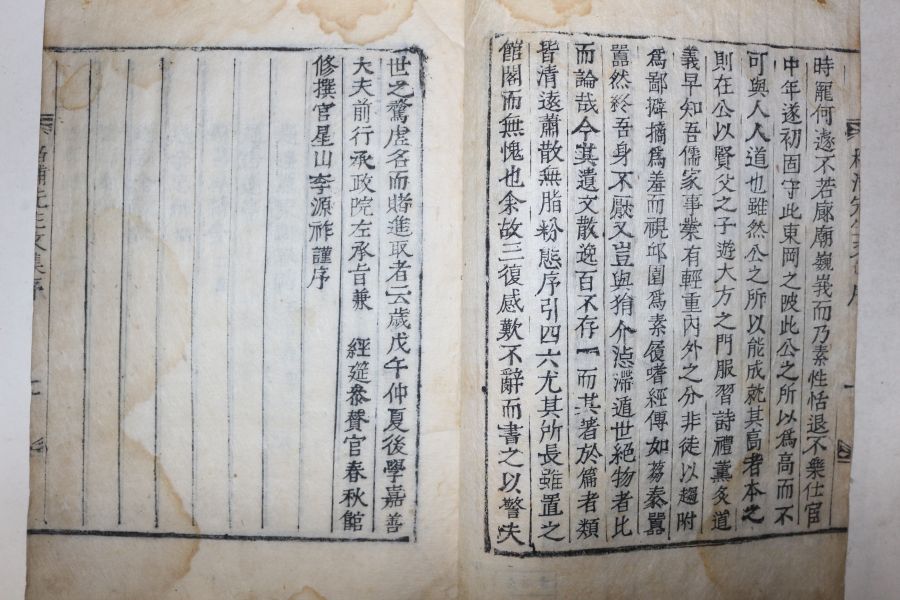 時罷何遽不若廊廟巍峩而乃素性恬退不樂仕宦
中年遂初固守此東岡之陂此公之所以爲高而不
可與人人道也雖然公之所以能成就其高者本之
則在公以賢父之子遊大方之門服習詩禮薰炙道
義早知吾儒家事業有輕重內外之分非徒以趨附
爲鄙僻摘爲羞而視邱園爲素履嗜經傳如芻豢囂
囂然終吾身不厭又豈與狷介滯遁世絕物者比
而論哉今其遺文散逸百不存一而其著於篇者類
皆清遠蕭散無脂粉態序引四六尤其所長雖置之
館閣而無愧也余故三復感歎不辭而書之以警夫
世之騖虛名而賭進取者云歲戊午仲夏後學嘉善
大夫前行承政院左承旨兼 經筵叅贊官春秋館
修撰官星山李源祚謹序